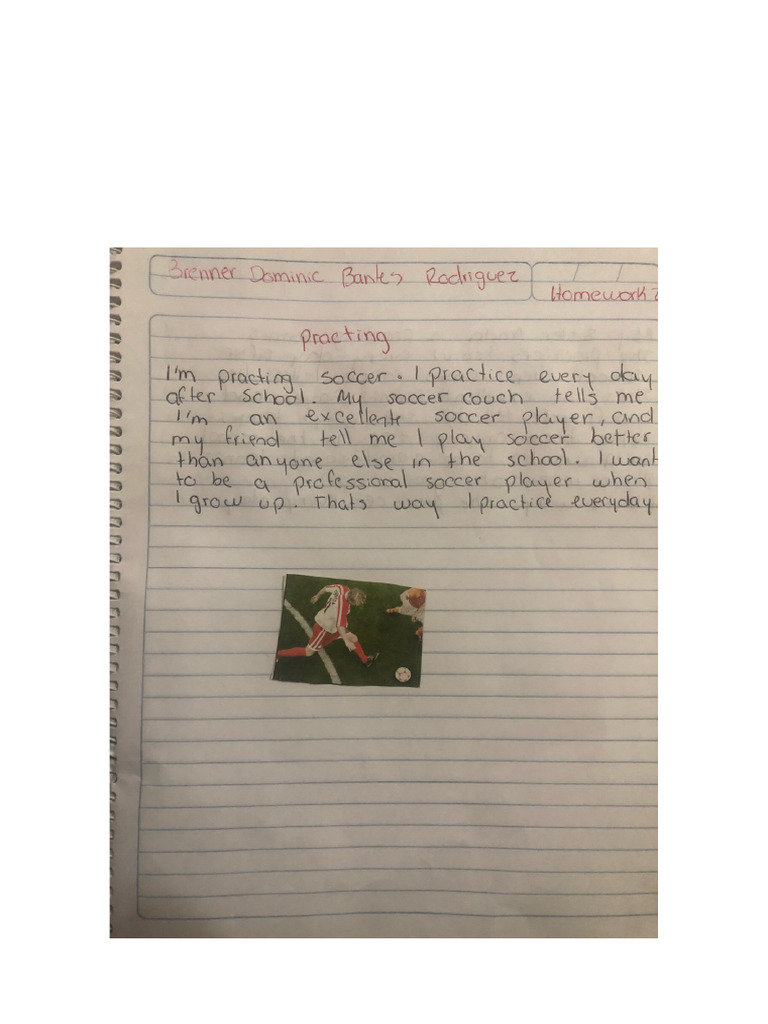 Brenner Dominic Banks Rodriguez
Homework 2
Practing
I'm practing soccer. I practice every day
after school. My soccer couch tells me
I'm an excellente soccer player, and
my friend tell me I play soccer better
than anyone else in the school. I want
to be a professional soccer player when
I grow up. Thats way I practice everyday